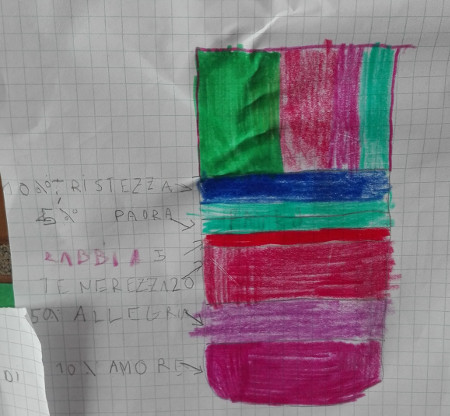 10%TRISTEZZA
5% PAORA
RABBIA 5
TENEREZZA20
50% ALLEGRIA
DI
10% AMORE